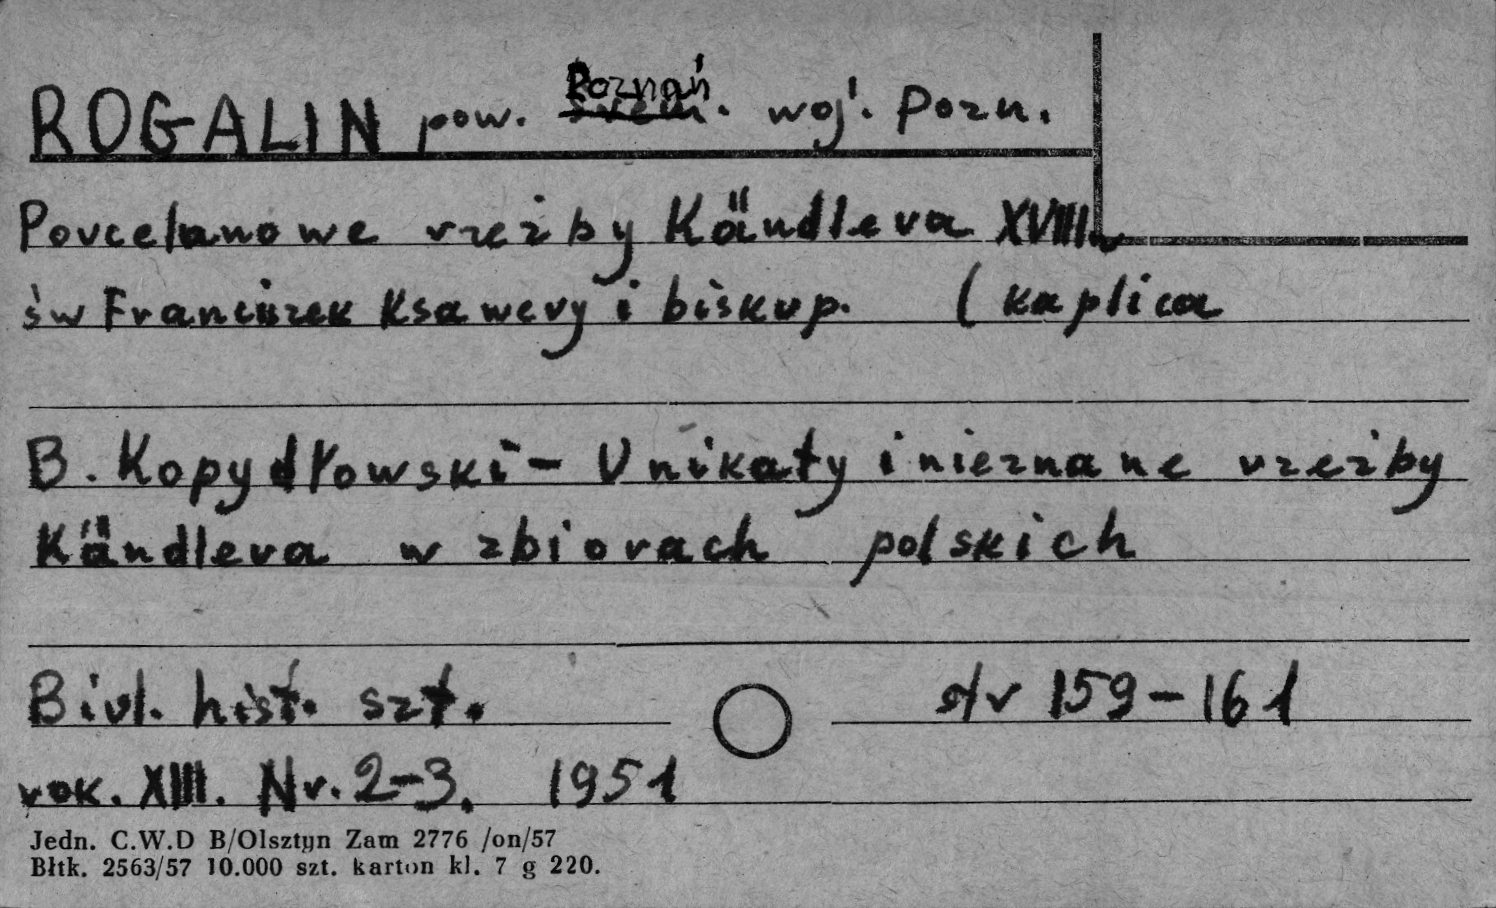 ROGALIN pow. Poznań śrem. woj. Pozn.
Porcelanowe rzeźby Kändlera XVIII w
św Franciszek Ksawery i biskup. (kaplica
B. Kopydłowski - Unikaty i nieznane rzeźby
Kändlera w zbiorach polskich
Biul. hist. szt. str 159-161
rok. XIII. Nr. 2-3. 1951
Jedn. C.W.D B/Olsztyn Zam 2776 /on/57
Błtk. 2563/57 10.000 szt. karton kl. 7 g 220.